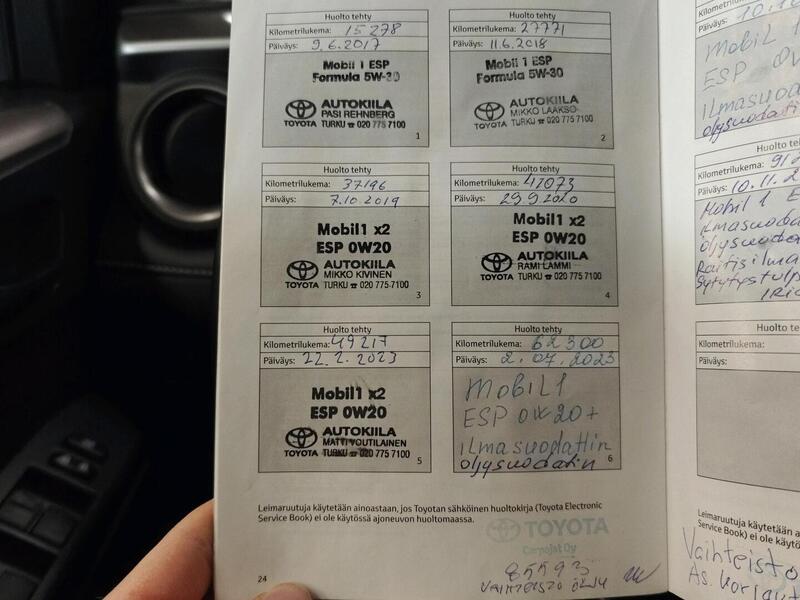 Huolto tehty
Kilometrilukema: 15 278
Päiväys: 9.6.2017
Mobil 1 ESP
Formula 5W-30
AUTOKIILA
PASI REHNBERG
TOYOTA TURKU ☎ 020 775 7100
1
Huolto tehty
Kilometrilukema: 27771
Päiväys: 11.6.2018
Mobil 1 ESP
Formula 5W-30
AUTOKIILA
MIKKO LAAKSO
TOYOTA TURKU ☎ 020 775 7100
2
Huolto tehty
Kilometrilukema: 37196
Päiväys: 7.10.2019
Mobil1 x2
ESP 0W20
AUTOKIILA
MIKKO KIVINEN
TOYOTA TURKU ☎ 020 775 7100
3
Huolto tehty
Kilometrilukema: 42073
Päiväys: 29.9.2020
Mobil1 x2
ESP 0W20
AUTOKIILA
RAMI LAMMI
TOYOTA TURKU ☎ 020 775 7100
4
Huolto tehty
Kilometrilukema: 49217
Päiväys: 22.2.2023
Mobil1 x2
ESP 0W20
AUTOKIILA
MATTI VOUTILAINEN
TOYOTA TURKU ☎ 020 775 7100
5
Huolto tehty
Kilometrilukema: 62 300
Päiväys: 2.07.2023
MOBIL 1
ESP 0W20+
ilmasuodattin
öljysuodatin
6
Leimaruutuja käytetään ainoastaan, jos Toyotan sähköinen huoltokirja (Toyota Electronic
Service Book) ei ole käytössä ajoneuvon huoltomaassa.
TOYOTA
85593
VAIHTEISTO ÖLJY
24
Kilometrilukema:
Päiväys: 10.10
Mobil 1
ESP 0W
ilmasuod
öljysuodat
Huolto teh
Kilometrilukema: 912
Päiväys: 10.11.2
Mobil 1 E
ilmasuoda
öljysuodat
Raitisilma
Sytytystulp
Huolto t
Kilometrilukema:
Päiväys:
Leimaruutuja käytetään a
Service Book) ei ole käytö
Vaihteisto
As. korjaut